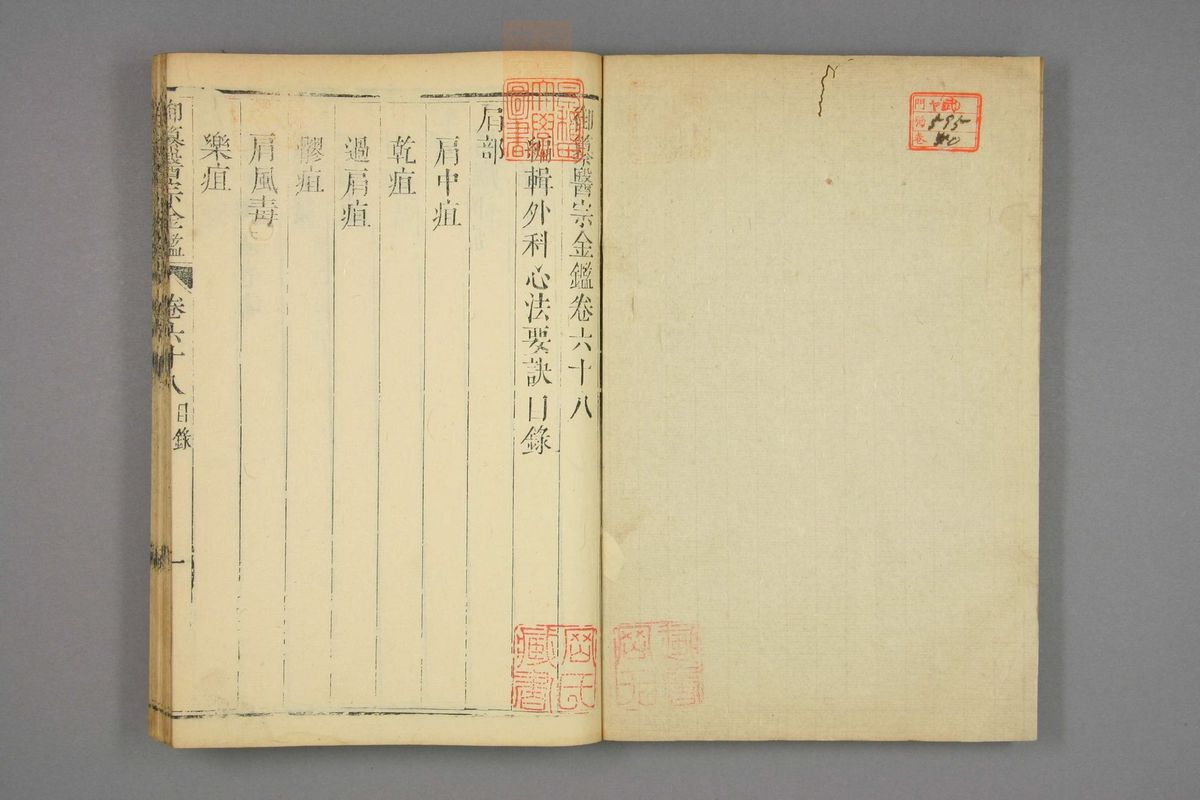 御纂醫宗金鑑卷六十八
編輯外科心法要訣目錄
肩部
肩中疽
乾疽
過肩疽
髎疽
肩風毒
樂疽
御纂醫宗金鑑 卷六十八 目錄 一
圖書
岡氏
藏書
門
號 595
卷